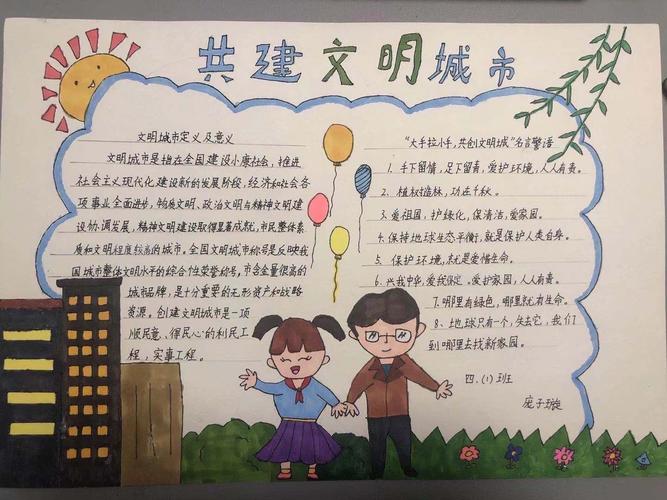 共建文明城市
文明城市定义及意义
文明城市是指在全国建设小康社会,推进
社会主义现代化建设新的发展阶段,经济和社会各
项事业全面进步,物质文明、政治文明与精神文明建
设协调发展,精神文明建设取得显著成就,市民整体素
质和文明程度较高的城市。全国文明城市称号是反映我
国城市整体文明水平的综合性荣誉称号,市含金量很高的
城市品牌,是十分重要的无形资产和战略
资源,创建文明城市是一项
顺民意、得民心的利民工
程,实事工程。
“大手拉小手,共创文明城”名言警语
1、手下留情,足下留青,爱护环境,人人有责。
2、植树造林,功在千秋。
3、爱祖国,护绿化,保清洁,爱家园。
4、保持地球生态平衡,就是保护人类自身。
5、保护环境,就是爱惜生命。
6、兴我中华,爱我绵,爱护家园,人人有责。
7、哪里有绿色,哪里就有生命。
8、地球只有一个,失去它,我们
到哪里去找新家园。
四.(1)班
庞子